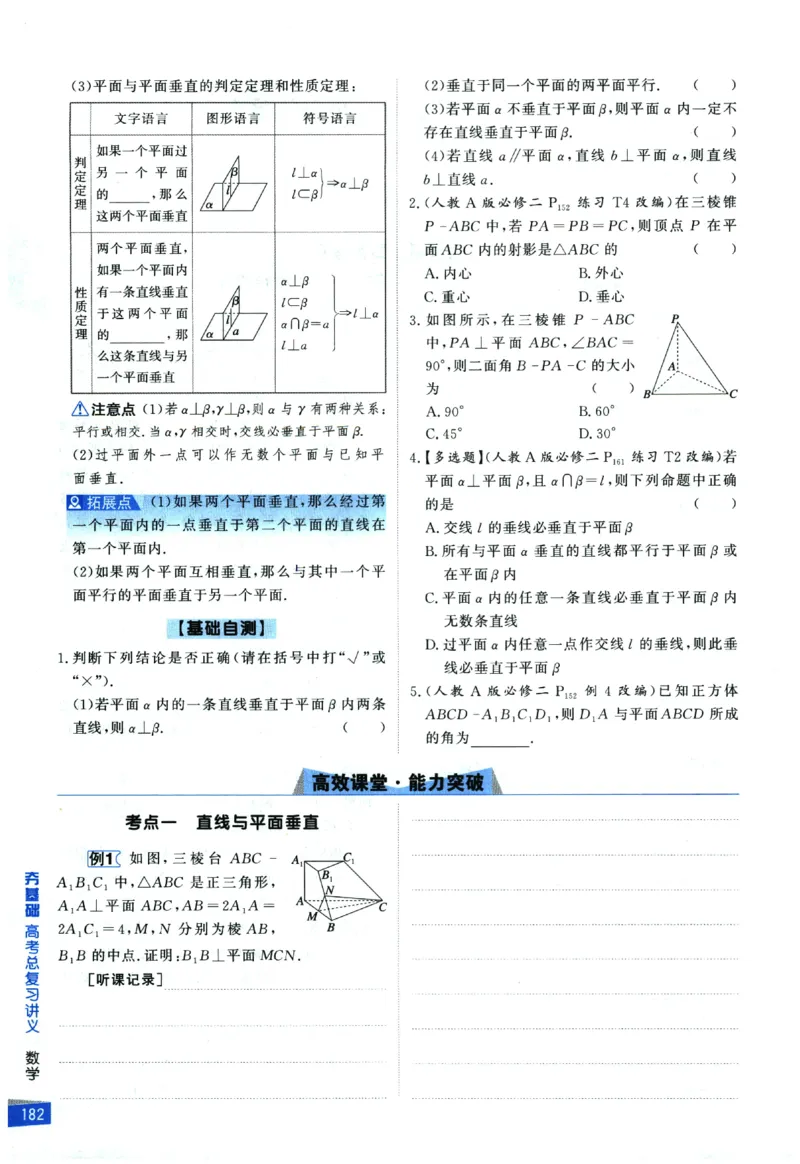 (3)平面与平面垂直的判定定理和性质定理:
文字语言 图形语言 符号语言
判定定理
如果一个平面过
另一个平面
的______,那么
这两个平面垂直
β
l
α
l⊥α
l⊂β
⇒α⊥β
性质定理
两个平面垂直,
如果一个平面内
有一条直线垂直
于这两个平面
的______,那
么这条直线与另
一个平面垂直
β
l
α a
α⊥β
l⊂β
α∩β=a
l⊥a
⇒l⊥α
注意点 (1)若α⊥β,γ⊥β,则α与γ有两种关系:
平行或相交.当α,γ相交时,交线必垂直于平面β.
(2)过平面外一点可以作无数个平面与已知平
面垂直.
拓展点 (1)如果两个平面垂直,那么经过第
一个平面内的一点垂直于第二个平面的直线在
第一个平面内.
(2)如果两个平面互相垂直,那么与其中一个平
面平行的平面垂直于另一个平面.
【基础自测】
1.判断下列结论是否正确(请在括号中打“√”或
“×”).
(1)若平面α内的一条直线垂直于平面β内两条
直线,则α⊥β. ( )
(2)垂直于同一个平面的两平面平行. ( )
(3)若平面α不垂直于平面β,则平面α内一定不
存在直线垂直于平面β. ( )
(4)若直线a∥平面α,直线b⊥平面α,则直线
b⊥直线a. ( )
2.(人教A版必修二P152 练习T4改编)在三棱锥
P-ABC中,若PA=PB=PC,则顶点P在平
面ABC内的射影是△ABC的 ( )
A.内心 B.外心
C.重心 D.垂心
3.如图所示,在三棱锥P-ABC
中,PA⊥平面ABC,∠BAC=
90°,则二面角B-PA-C的大小
为 ( )
A.90° B.60°
C.45° D.30°
P
A
B C
4.【多选题】(人教A版必修二P161 练习T2改编)若
平面α⊥平面β,且α∩β=l,则下列命题中正确
的是 ( )
A.交线l的垂线必垂直于平面β
B.所有与平面α垂直的直线都平行于平面β或
在平面β内
C.平面α内的任意一条直线必垂直于平面β内
无数条直线
D.过平面α内任意一点作交线l的垂线,则此垂
线必垂直于平面β
5.(人教A版必修二P152 例4改编)已知正方体
ABCD-A1B1C1D1,则D1A与平面ABCD所成
的角为______.
高效课堂·能力突破
考点一 直线与平面垂直
例1 如图,三棱台ABC-
A1B1C1中,△ABC是正三角形,
A1A⊥平面ABC,AB=2A1A=
2A1C1=4,M,N分别为棱AB,
B1B的中点.证明:B1B⊥平面MCN.
A1 C1
B1
N
A C
M
B
[听课记录]
夯基础 高考总复习讲义 数学
182